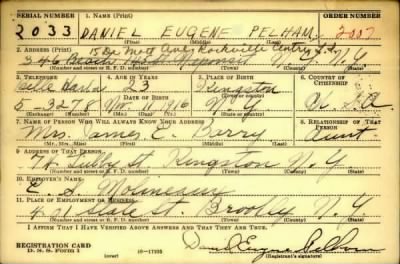 SERIAL NUMBER 1. NAME (Print) ORDER NUMBER
2033 DANIEL EUGENE PELHAM 2007
(First) (Middle) (Last)
2. ADDRESS (Print)
15 De Mott Ave Rockville Centry L.I.
346 N.Y. N.Y.
(Number and street or R. F. D. number) (Town) (County) (State)
3. TELEPHONE 4. AGE IN YEARS 5. PLACE OF BIRTH 6. COUNTRY OF CITIZENSHIP
Belle Harbor 23 Kingston
5-3278 1916 N.Y. U.S.A.
7. NAME OF PERSON WHO WILL ALWAYS KNOW YOUR ADDRESS 8. RELATIONSHIP OF THAT PERSON
Mrs. James E. Berry Aunt
(Mr., Mrs., Miss) (First) (Middle) (Last)
9. ADDRESS OF THAT PERSON
74 St Kingston N.Y
(Number and street or R. F. D. number) (Town) (County) (State)
10. EMPLOYER'S NAME
E. S. Molineaux
11. PLACE OF EMPLOYMENT OR BUSINESS
State St. Brooklyn N.Y
(Number and street or R. F. D. number) (Town) (County) (State)
I AFFIRM THAT I HAVE VERIFIED ABOVE ANSWERS AND THAT THEY ARE TRUE.
REGISTRATION CARD
D. S. S. Form 1 (over) 16—17105 Daniel Eugene Pelham
(Registrant's signature)